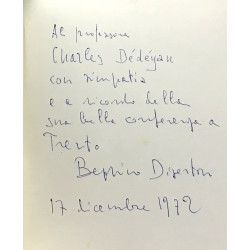 Al professore
Charles Dédéyan
con simpatia
e a ricordo della
sua bella conferenza a
Trento.
Beppino Disertori
17 dicembre 1972